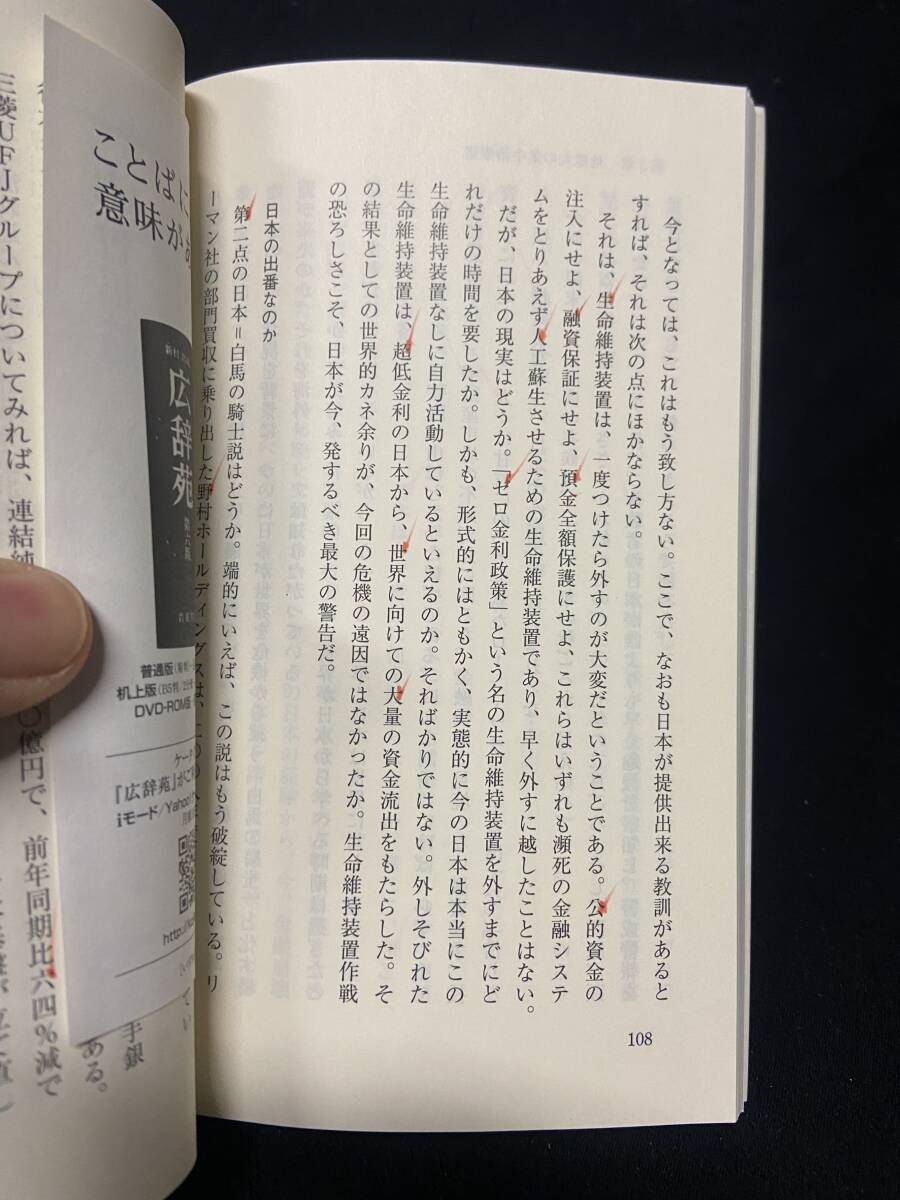 今となっては、これはもう致し方ない。ここで、なおも日本が提供出来る教訓があると
すれば、それは次の点にほかならない。
それは、生命維持装置は、一度つけたら外すのが大変だということである。公的資金の
注入にせよ、融資保証にせよ、預金全額保護にせよ、これらはいずれも瀕死の金融システ
ムをとりあえず人工蘇生させるための生命維持装置であり、早く外すに越したことはない。
だが、日本の現実はどうか。「ゼロ金利政策」という名の生命維持装置を外すまでにど
れだけの時間を要したか。しかも、形式的にはともかく、実態的に今の日本は本当にこの
生命維持装置なしに自力活動しているといえるのか。そればかりではない。外しそびれた
生命維持装置は、超低金利の日本から、世界に向けての大量の資金流出をもたらした。そ
の結果としての世界的カネ余りが、今回の危機の遠因ではなかったか。生命維持装置作戦
の恐ろしさこそ、日本が今、発するべき最大の警告だ。
日本の出番なのか
第二点の日本＝白馬の騎士説はどうか。端的にいえば、この説はもう破綻している。リ
ーマン社の部門買収に乗り出した野村ホールディングスは、
108
ことばに
意味が
広辞苑
第六版
普通版
机上版(B5判
DVD-ROM版
ケータ
「広辞苑」が
iモード/Yahoo!
http://
三菱UFJグループについてみれば、連結純
〇億円で、前年同期比六四％減で
手銀
ある。